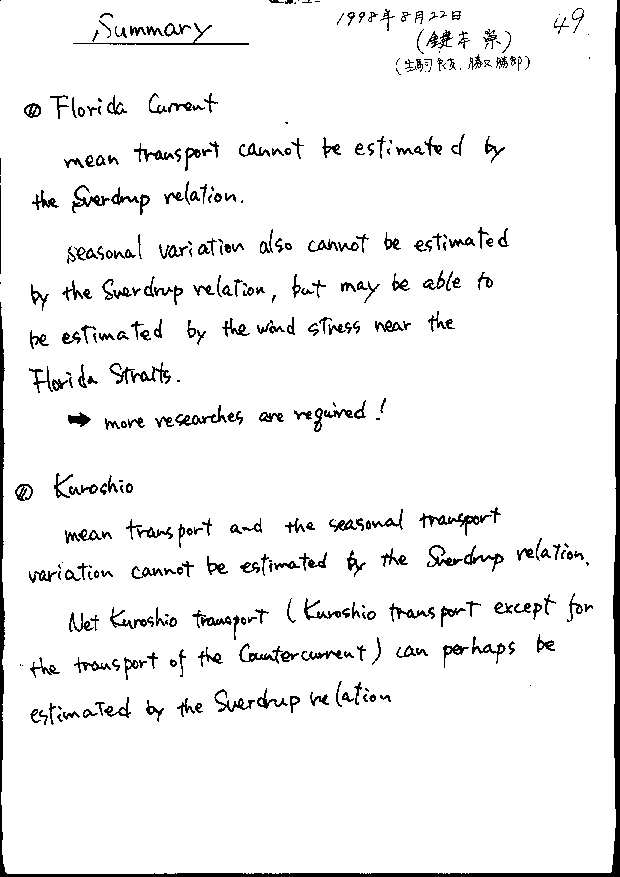 Summary
1998年8月22日
49.
Florida Current
mean transport cannot be estimated by
the Sverdrup relation.
seasonal variation also cannot be estimated
by the Sverdrup relation, but may be able to
be estimated by the wind stress near the
Florida Straits.
➡ more researches are required!
Kuroshio
mean transport and the seasonal transport
variation cannot be estimated by the Sverdrup relation.
Net Kuroshio transport (Kuroshio transport except for
the transport of the Countercurrent) can perhaps be
estimated by the Sverdrup relation